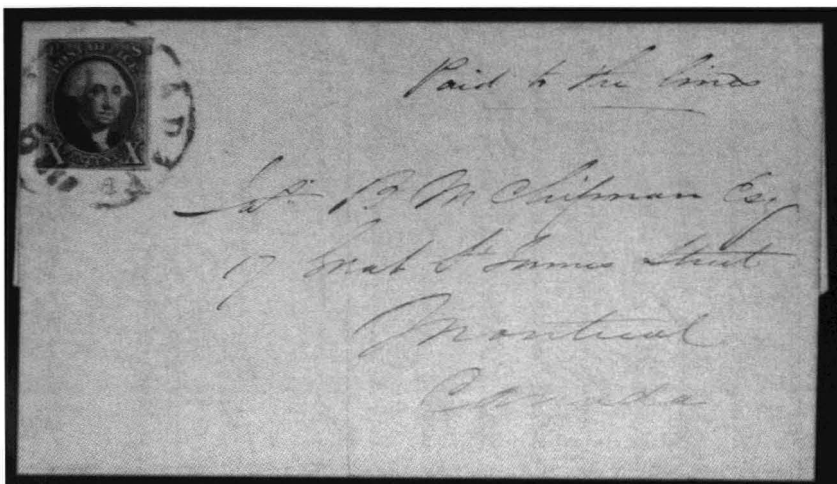 POST OFFICE
X X
CENTS
Paid to the lines
B M Chipman Esq
17 Great St James Street
Montreal
Canada